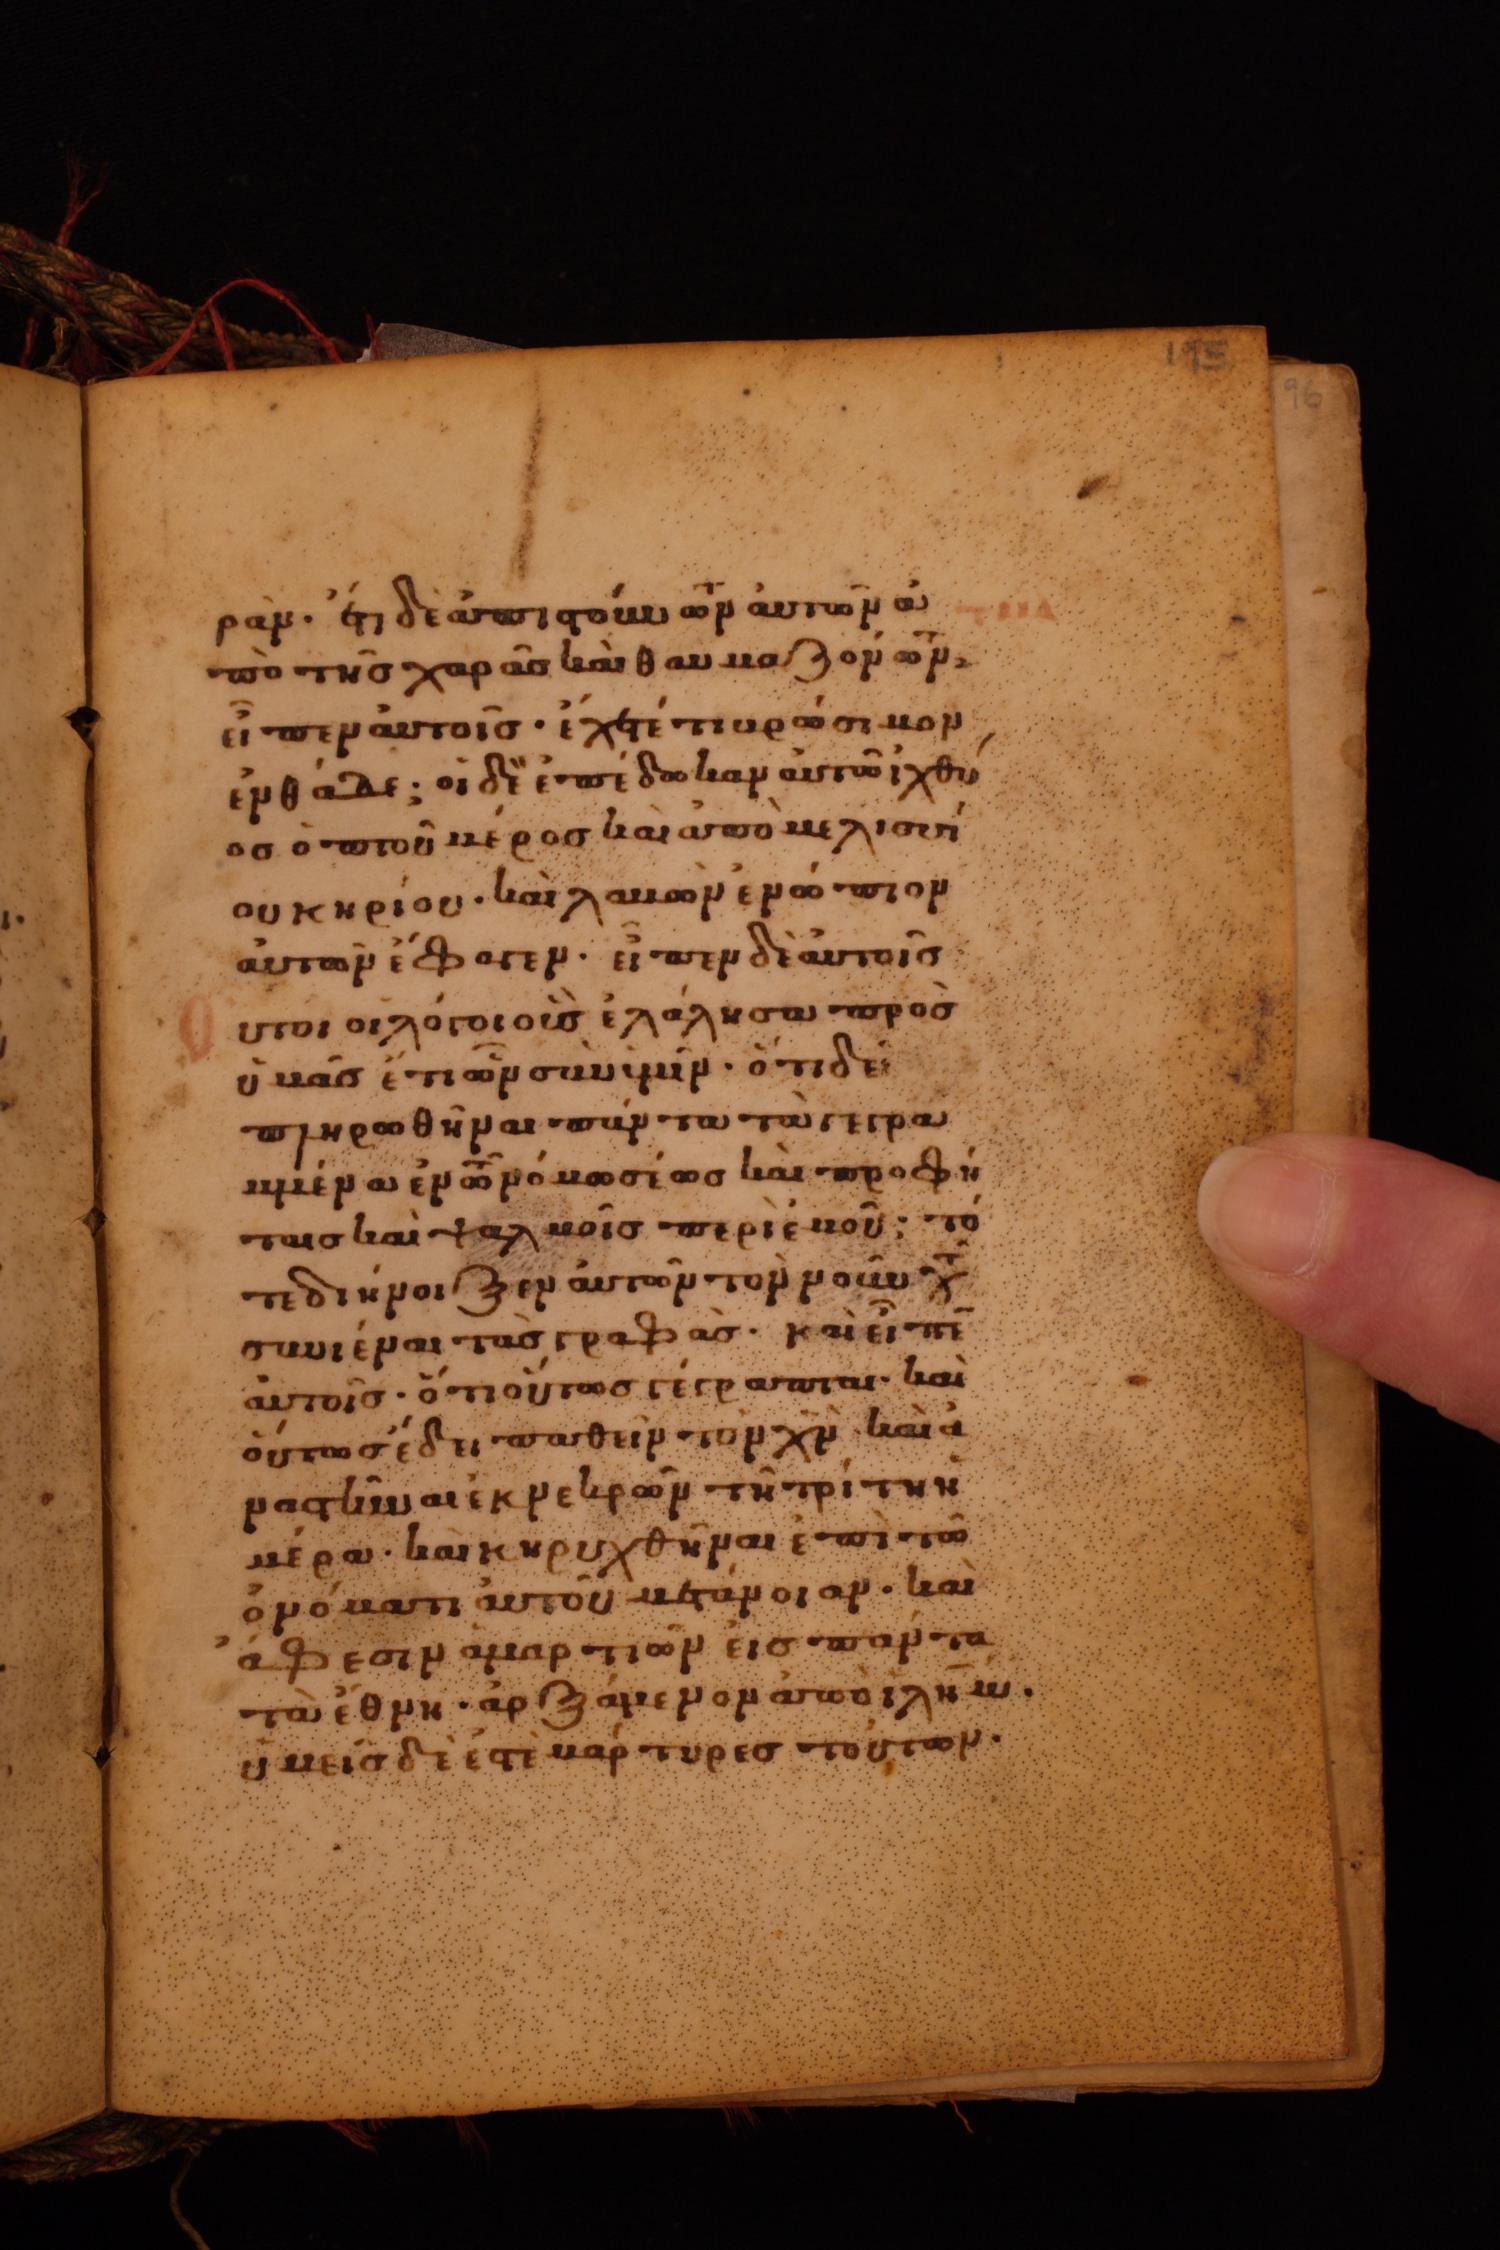 195
96
ρὰν. ἔτι δὲ ἀπιστούντων ἀυτῶν ἀ
πὸ τῆς χαρᾶς καὶ θαυμαζόντων,
εἶπεν ἀυτοῖς. ἔχετέ τι βρώσιμον
ἐνθάδε; οἱ δὲ ἐπέδωκαν ἀυτῶ ἰχθύ
ος ὀπτοῦ μέρος καὶ ἀπὸ μελισσί
ου κηρίου. καὶ λαβὼν ἐνώπιον
ἀυτῶν ἔφαγεν. εἶπεν δὲ ἀυτοῖς
Ουτοι οι λόγοι οὓς ἐλάλησα πρὸς
ὑμᾶς ἔτι ὢν σὺν ὑμῖν. ὅτι δεῖ
πληρωθῆναι πάντα τὰ γεγρα
μμένα ἐν τῶ νόμω μωσέως καὶ προφή
ταις καὶ ψαλμοῖς περὶ ἐμοῦ; τό
τε διήνοιξεν ἀυτῶν τὸν νοῦν τοῦ
συνιέναι τὰς γραφὰς. καὶ εἶπεν
ἀυτοῖς. ὅτι οὕτως γέγραπται. καὶ
οὕτως ἔδει παθεῖν τὸν χν καὶ ἀ
ναστῆναι ἐκ νεκρῶν τῆ τρίτη ἡ
μέρα. καὶ κηρυχθῆναι ἐπὶ τῶ
ὀνόματι ἀυτοῦ μετάνοιαν. καὶ
ἄφεσιν ἁμαρτιῶν εἰς πάντα
τὰ ἔθνη. ἀρξάμενον ἀπὸ ιλημ.
ὑμεῖς δὲ ἐστὲ μάρτυρες τούτων.